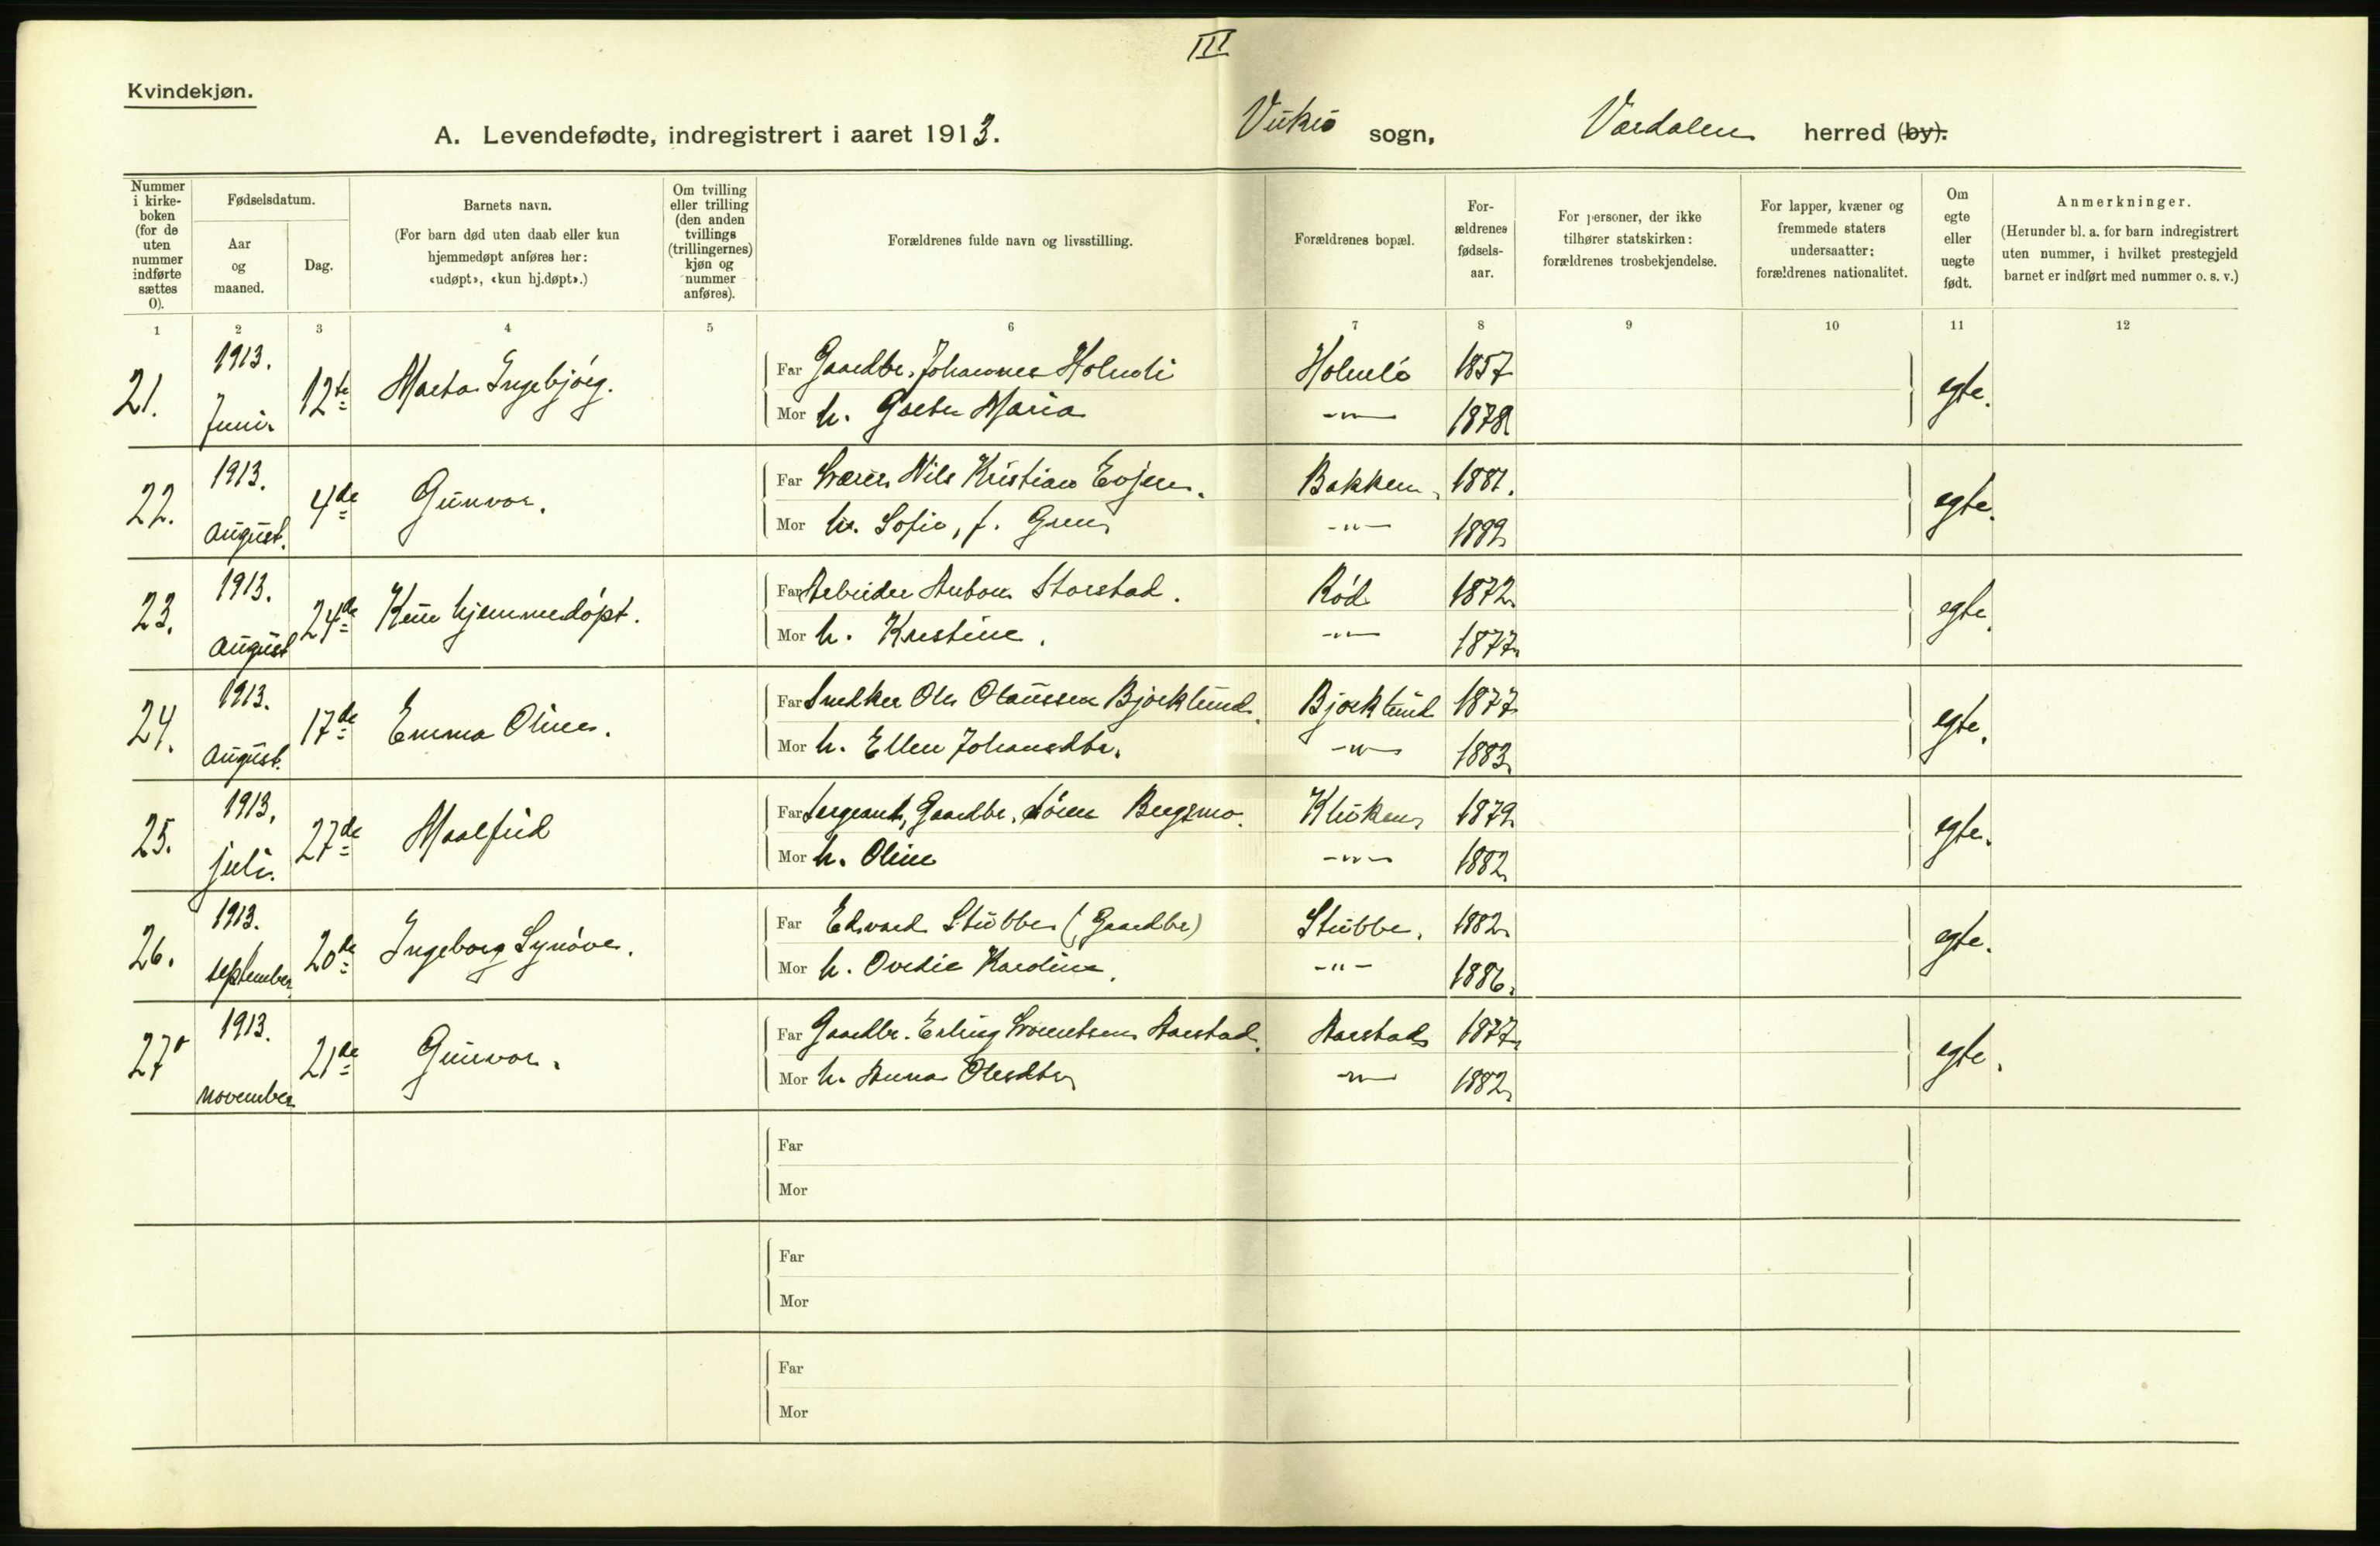 III
Kvindekjøn.
A. Levendefødte, indregistrert i aaret 1913. Vuku sogn, Værdalen herred (by).
Nummer i kirke-boken (for de uten nummer indførte sættes 0).
Fødselsdatum.
Aar og maaned.
Dag.
Barnets navn.
(For barn død uten daab eller kun hjemmedøpt anføres her: «udøpt», «kun hj.døpt».)
Om tvilling eller trilling (den anden tvillings (trillingernes) kjøn og nummer anføres).
Forældrenes fulde navn og livsstilling.
Forældrenes bopæl.
For-ældrenes fødsels-aar.
For personer, der ikke tilhører statskirken: forældrenes trosbekjendelse.
For lapper, kvæner og fremmede staters undersaatter: forældrenes nationalitet.
Om egte eller uegte født.
Anmerkninger.
(Herunder bl. a. for barn indregistrert uten nummer, i hvilket prestegjeld barnet er indført med nummer o. s. v.)
1 2 3 4 5 6 7 8 9 10 11 12
21. 1913. Juni 12te Marta Ingebjørg. Far Gaardbr. Johannes Holmli Holmli 1857 egte.
Mor h. Maria -"- 1878
22. 1913. August. 4de Gunvor. Far Nils Kristian Evjen. Bakken 1881. egte.
Mor h. Sofie, f. -"- 1889
23. 1913. August 24de Kun hjemmedøpt. Far Arbeider Anton Storstad. Rød 1872 egte.
Mor h. Kristine. -"- 1877
24. 1913. August. 17de Emma Oline. Far Snedker Ole Olaussen Bjørklund. Bjørklund 1877 egte.
Mor h. Ellen Johansdtr. -"- 1883
25. 1913. juli. 27de Maalfrid Far Sergeant, Gaardbr. Bergsmo. Kluken 1879 egte.
Mor h. Oline -"- 1882
26. 1913. september 20de Ingeborg Synøve. Far Edvard Stubbe (Gaardbr) Stubbe. 1882 egte.
Mor h. Ovedie Karoline. -"- 1886.
27 1913. november 21de Gunvor. Far Gaardbr. Erling Aarstad. Aarstad 1877 egte.
Mor h. Anna Olesdtr -"- 1882
Far
Mor
Far
Mor
Far
Mor